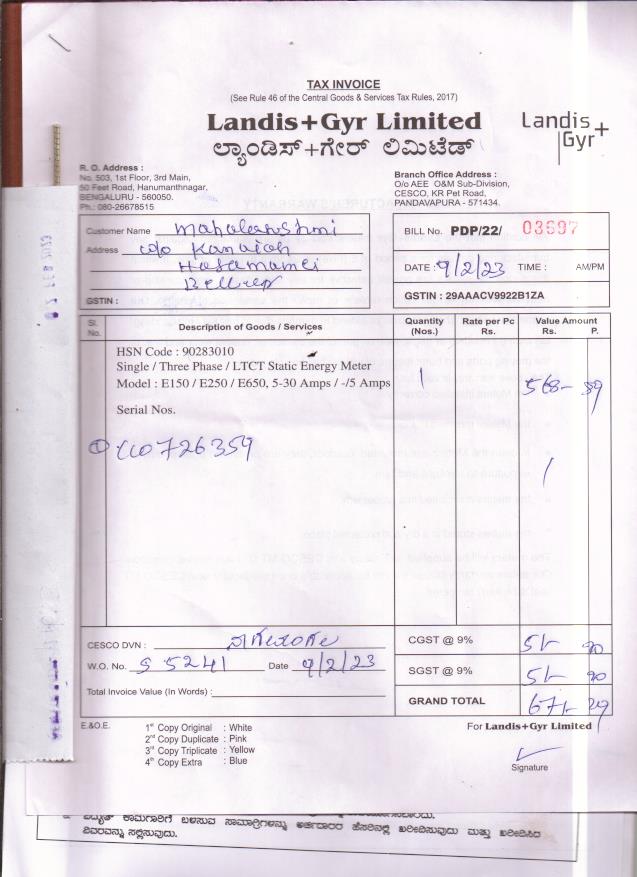 TAX INVOICE
(See Rule 46 of the Central Goods & Services Tax Rules, 2017)
Landis+Gyr Limited
ಲ್ಯಾಂಡಿಸ್+ಗೇರ್ ಲಿಮಿಟೆಡ್
Landis+
Gyr
R. O. Address :
No. 503, 1st Floor, 3rd Main,
50 Feet Road, Hanumanthnagar,
BENGALURU - 560050.
Ph.: 080-26678515
Branch Office Address :
O/o AEE O&M Sub-Division,
CESCO, KR Pet Road,
PANDAVAPURA - 571434.
Customer Name
Address c/o
GSTIN :
BILL No. PDP/22/ 03697
DATE : 9/2/23 TIME : AM/PM
GSTIN : 29AAACV9922B1ZA
Sl. No. Description of Goods / Services Quantity (Nos.) Rate per Pc Rs. Value Amount Rs. P.
HSN Code : 90283010
Single / Three Phase / LTCT Static Energy Meter
Model : E150 / E250 / E650, 5-30 Amps / -/5 Amps 1 568- 89
Serial Nos.
CESCO DVN :
W.O. No. S 5241 Date 9/2/23
Total Invoice Value (In Words) :
CGST @ 9% 51- 20
SGST @ 9% 51- 20
GRAND TOTAL 671- 29
E.&O.E.
1st Copy Original : White
2nd Copy Duplicate : Pink
3rd Copy Triplicate : Yellow
4th Copy Extra : Blue
For Landis+Gyr Limited
Signature
ವಿದ್ಯುತ್ ಕಾಮಗಾರಿಗೆ ಬಳಸುವ ಸಾಮಾಗ್ರಿಗಳನ್ನು ಅರ್ಜಿದಾರರ ಹೆಸರಿನಲ್ಲಿ ಖರೀದಿಸುವುದು ಮತ್ತು ಖರೀದಿಸಿದ
ವಿವರವನ್ನು ಸಲ್ಲಿಸುವುದು.